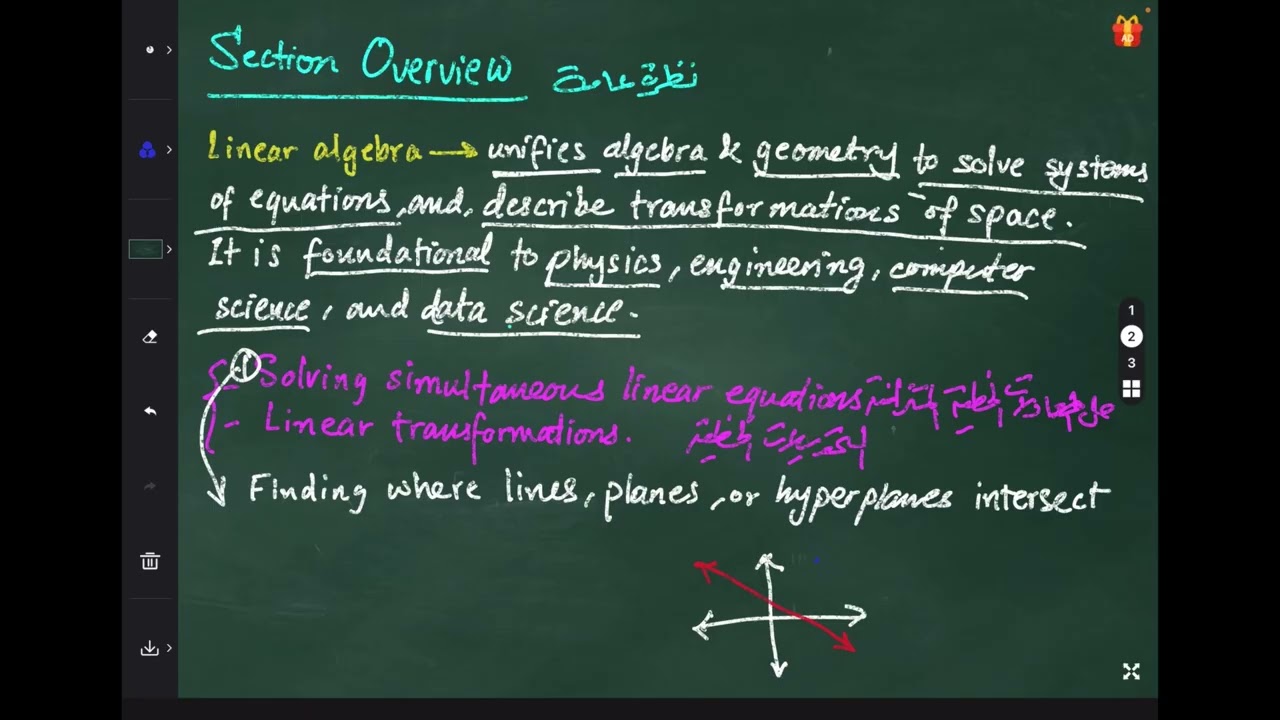 Section Overview نظرة عامة
AD
Linear algebra → unifies algebra & geometry to solve systems
of equations, and, describe transformations of space.
It is foundational to physics, engineering, computer
science, and data science.
1
2
3
① Solving simultaneous linear equations
- Linear transformations. التحويلات الخطية
Finding where lines, planes, or hyperplanes intersect